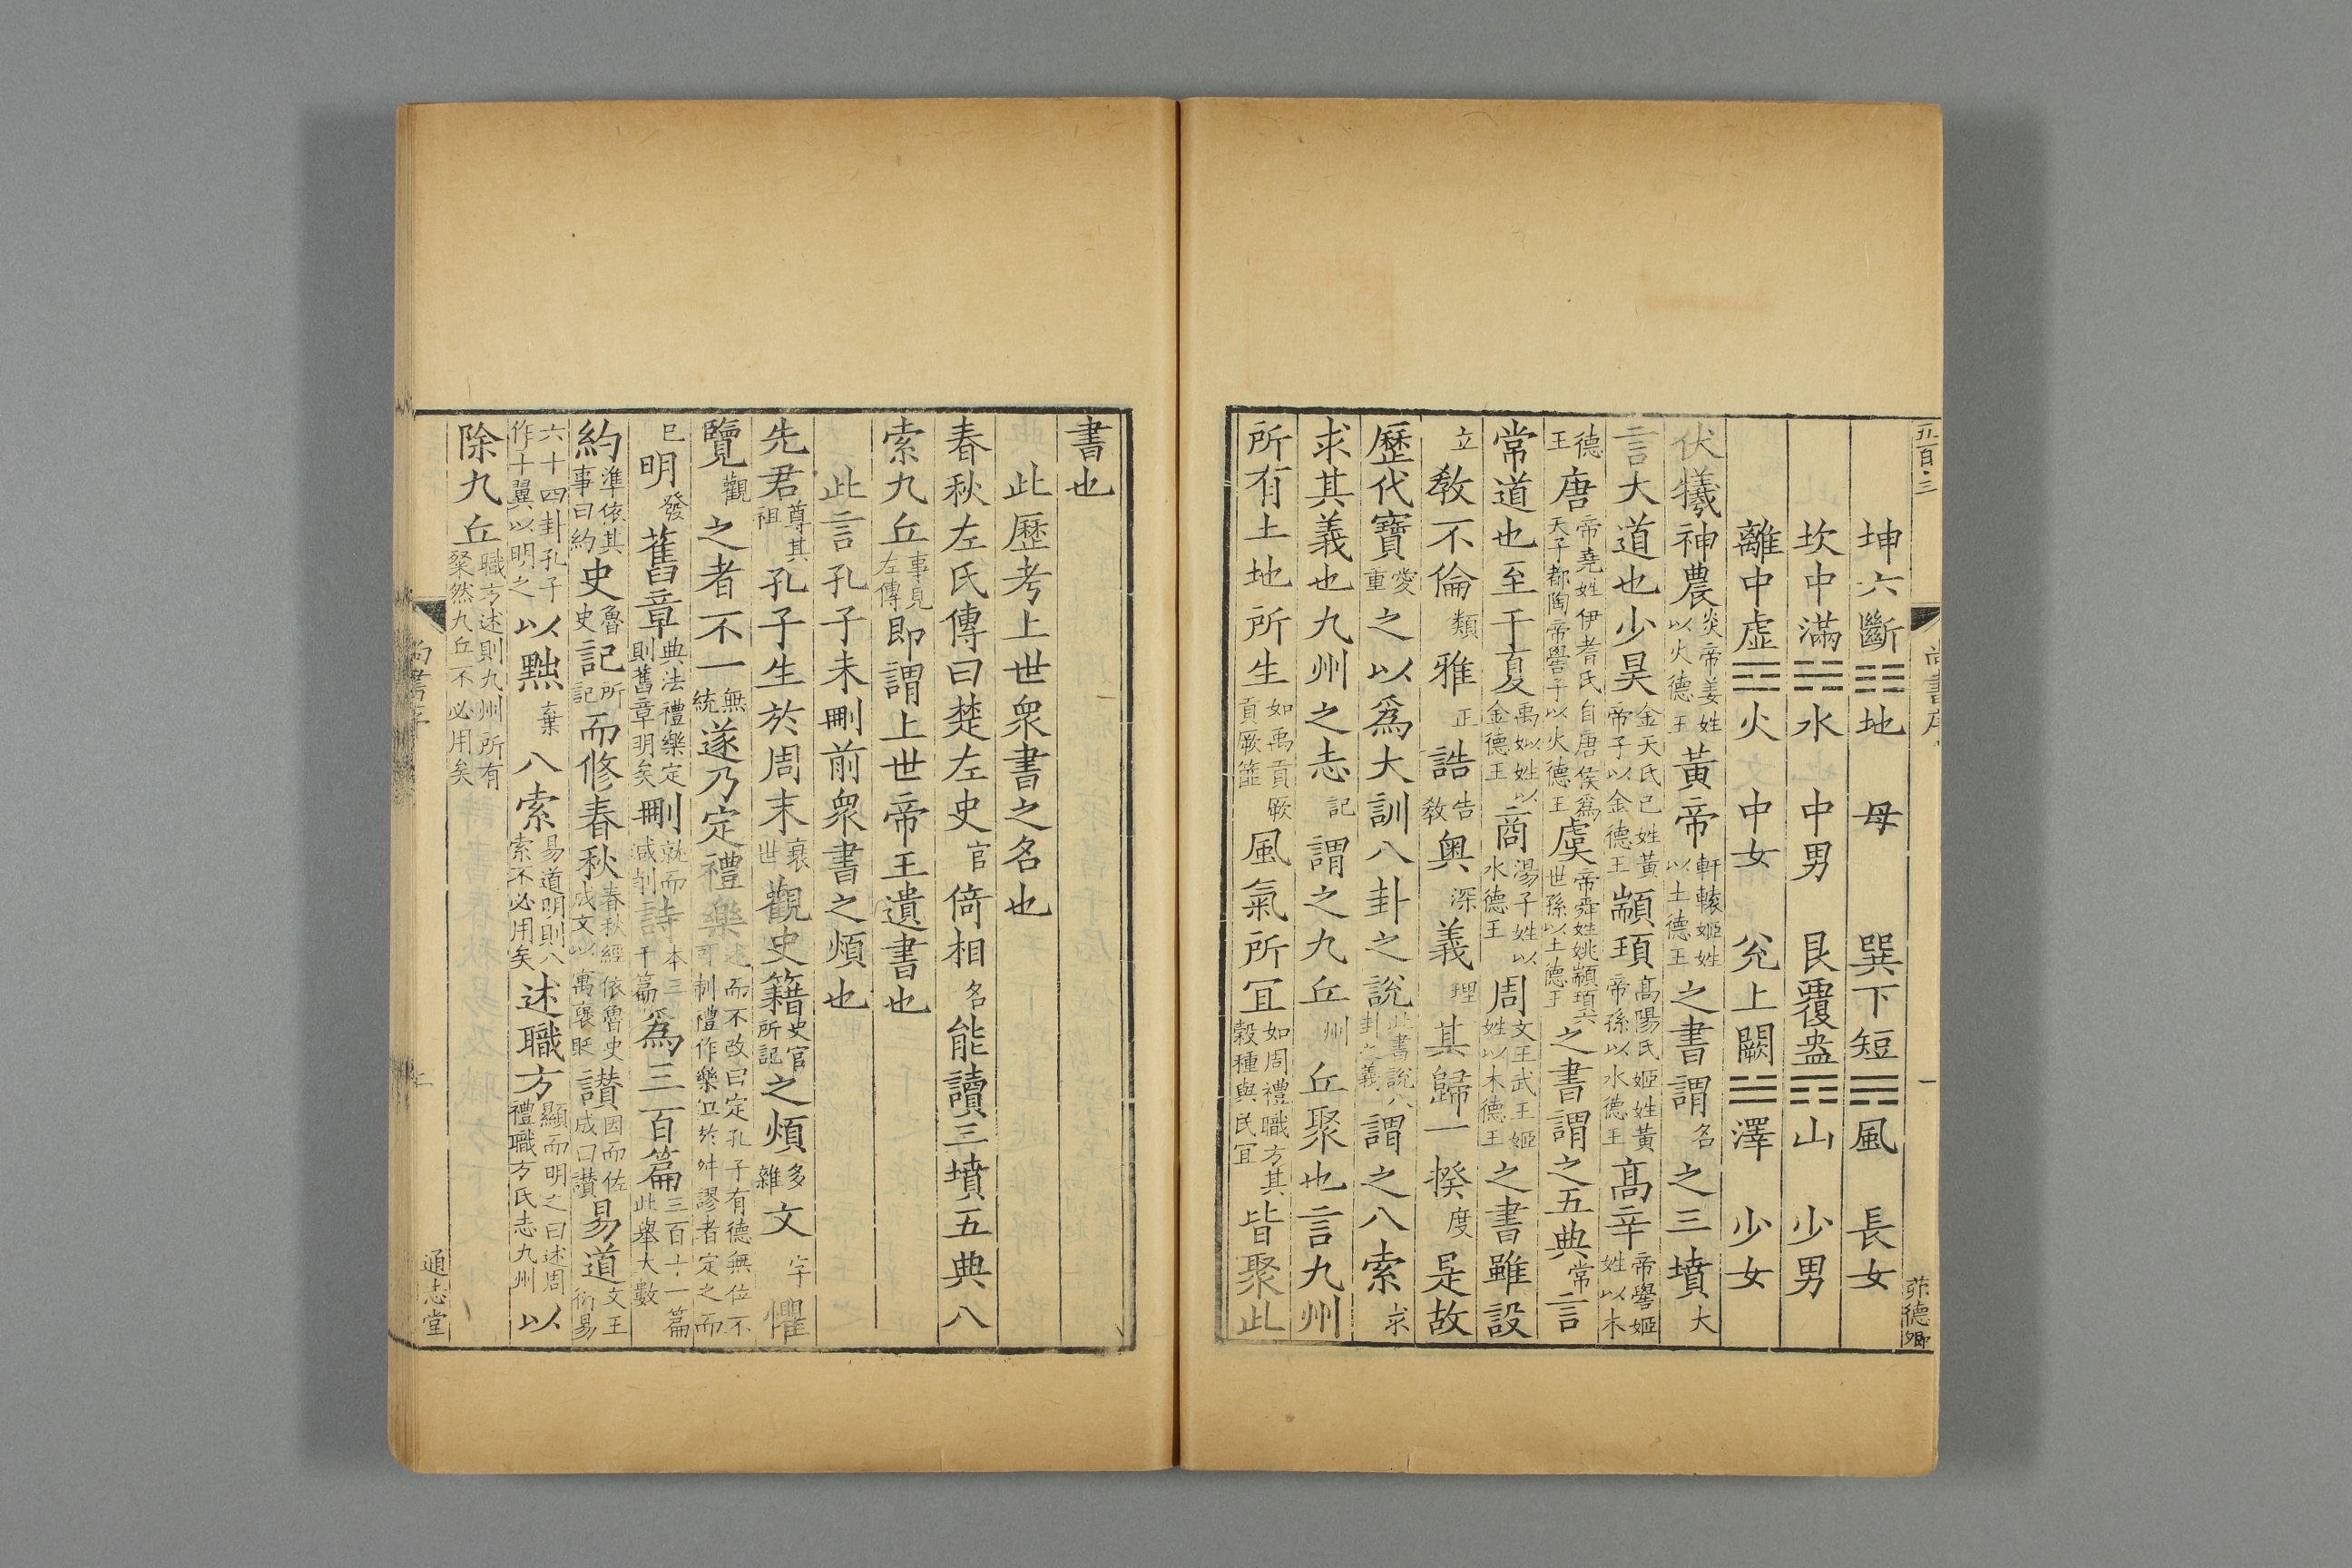 五百三
尚書序
一
茆德卿
坤六斷☷地　母　巽下短☴風　長女
坎中滿☵水　中男　艮覆盌☶山　少男
離中虛☲火　中女　兊上闕☱澤　少女
伏犧神農炎帝姜姓以火德王黃帝軒轅姬姓以土德王之書謂名之三墳大
言大道也少昊金天氏已姓黃帝子以金德王顓頊高陽氏姬姓黃帝孫以水德王高辛帝嚳姬姓以木
德王唐帝堯姓伊耆氏自唐侯爲天子都陶帝嚳子以火德王虞帝舜姓姚顓頊六世孫以土德王之書謂之五典常言
常道也至于夏禹姒姓以金德王商湯子姓以水德王周文王武王姬姓以木德王之書雖設
立敎不倫類雅正誥告敎奧深義理其歸一揆度是故
歷代寶愛重之以爲大訓八卦之說此書說八卦之義謂之八索求
求其義也九州之志記謂之九丘州丘聚也言九州
所有土地所生如禹貢厥貢厥篚風氣所宜如周禮職方其穀種與民宜皆聚此
書也
此歷考上世衆書之名也
春秋左氏傳曰楚左史官倚相名能讀三墳五典八
索九丘事見左傳即謂上世帝王遺書也
此言孔子未刪前衆書之煩也
先君尊其祖孔子生於周末衰世觀史籍史官所記之煩多雜文字懼
覽觀之者不一無統遂乃定禮樂述而不改曰定孔子有德無位不可制禮作樂但於舛謬者定之而
已明發舊章典法禮樂定則舊章明矣刪就而減削詩本三千篇爲三百篇三百十一篇此舉大數
約準依其事曰約史魯史記所記而修春秋春秋經依魯史成文以寓褒貶讃因而佐成曰讃易道文王衍易
六十四卦孔子作十翼以明之以黜棄八索易道明則八索不必用矣述職方顯而明之曰述周禮職方氏志九州以
除九丘職方述則九州所有粲然九丘不必用矣
尚書序
二
通志堂